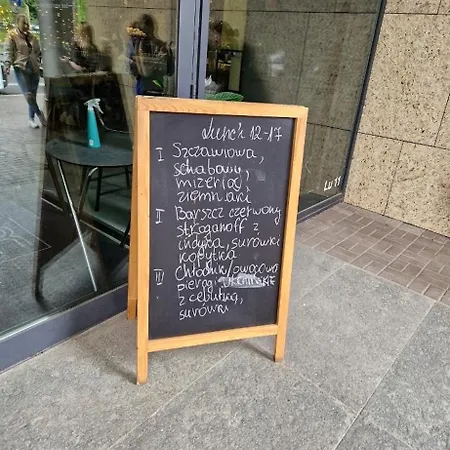 Lunch 12-17
I Szczawiowa,
schabowy,
mizeria,
ziemniaki
II Barszcz czerwony
stroganoff z
indyka, surówki
kopytka
III Chłodnik/owocowa
pierogi
z cebulką,
surówki
Lu 11